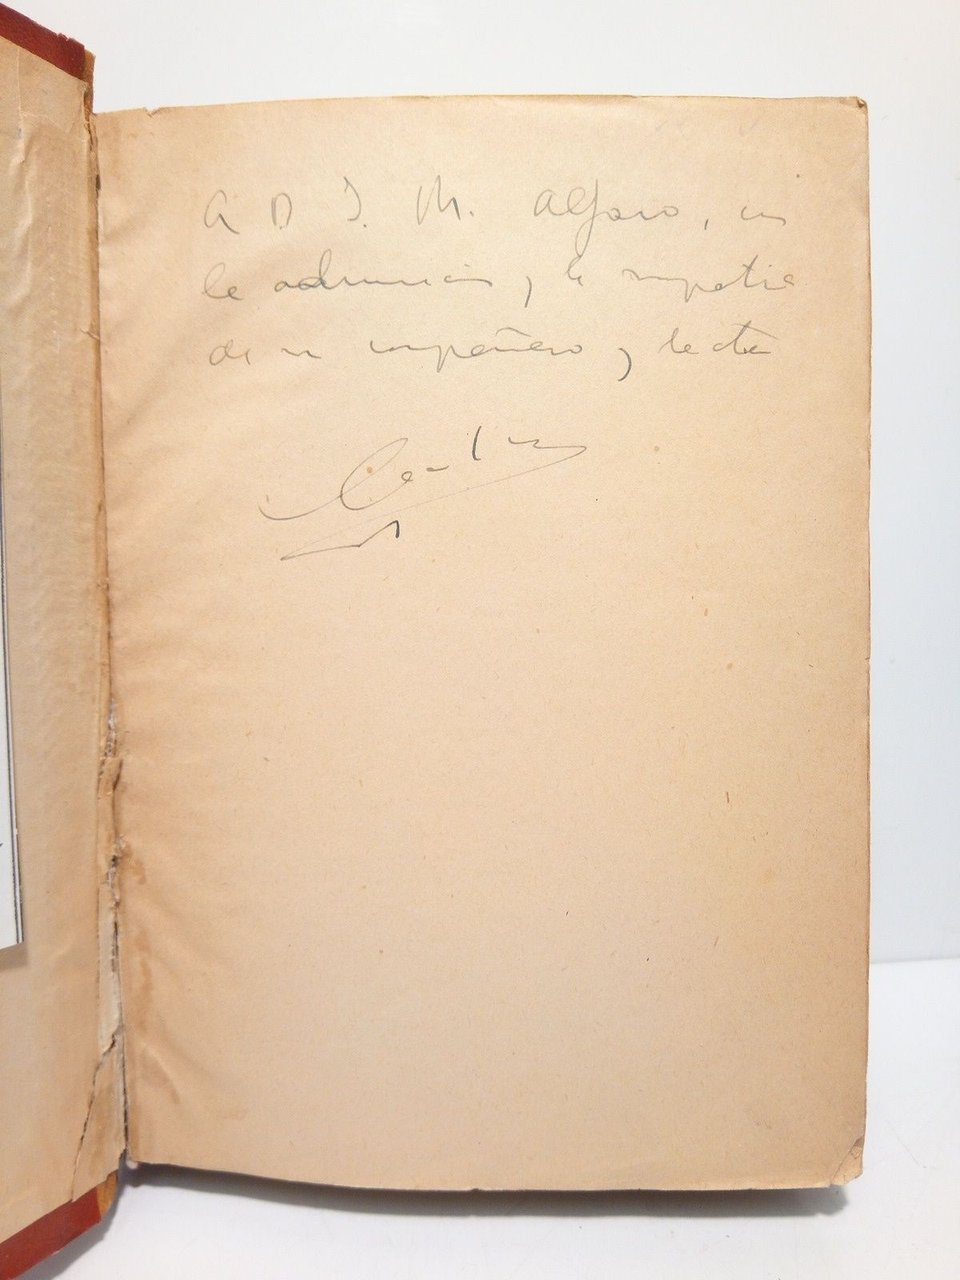 A D J. M. Alfaro, con
la admiración y la simpatía
de su compañero y lector